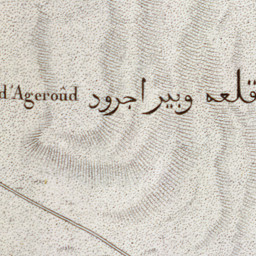 d'Ageroûd قلعه وبير اجرود